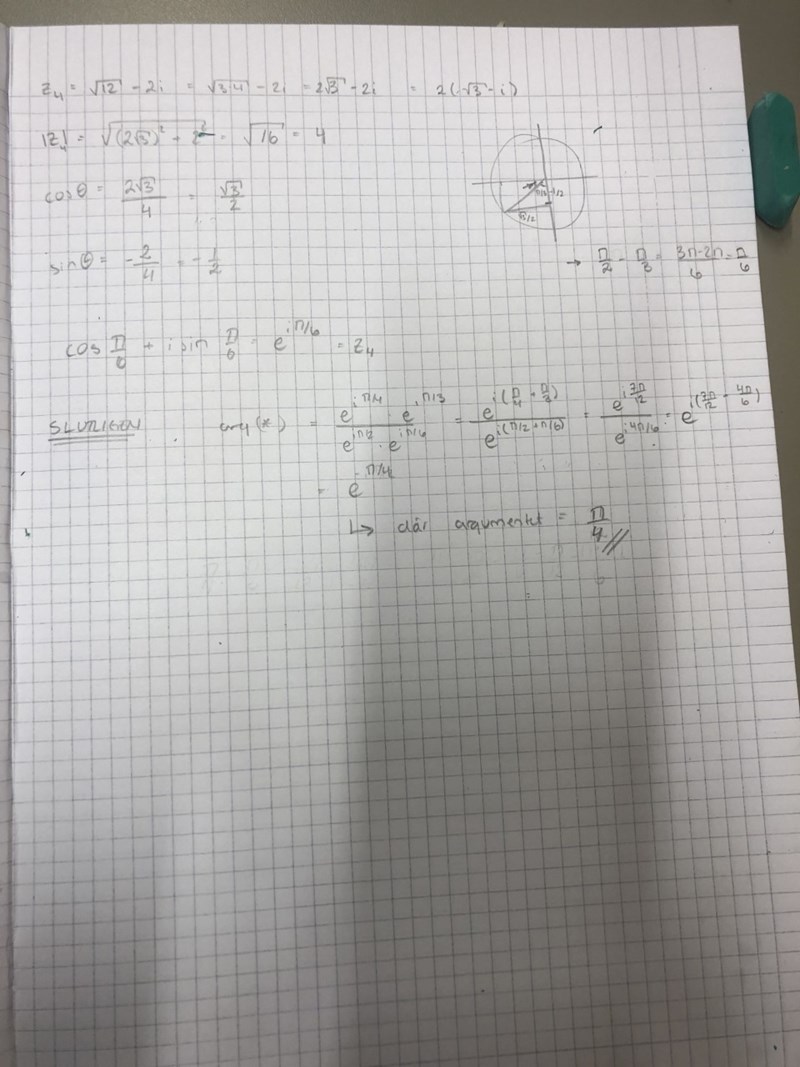 z₄ = √12 - 2i = √3·4 - 2i = 2√3 - 2i = 2(√3 - i)
|z₄| = √((2√3)² + 2²) = √16 = 4
cosθ = 2√3/4 = √3/2
sinθ = -2/4 = -1/2
√3/2
→ π/2 - π/3 = 3π-2π/6 = π/6
cos π/6 + i sin π/6 = e^(iπ/6) = z₄
SLUTLIGEN arg(*) = e^(iπ/4) · e^(iπ/3) / e^(iπ/2) · e^(iπ/6) = e^(i(π/4 + π/3)) / e^(i(π/2+π/6)) = e^(i7π/12) / e^(i4π/6) = e^(i(7π/12 - 4π/6))
= e^(-π/4)
↳ där argumentet = π/4 //